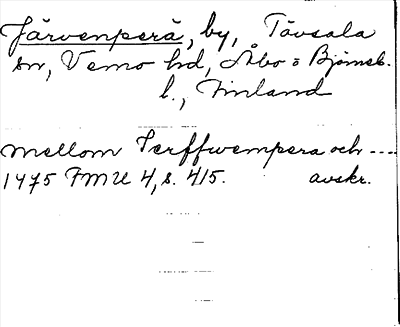 Järvenperä, by, Tövsala
sn, Vemo hd, Åbo o Björneb.
l., Finland
mellom Jerffwempera och ----
1475 FMU 4, s. 415. avskr.